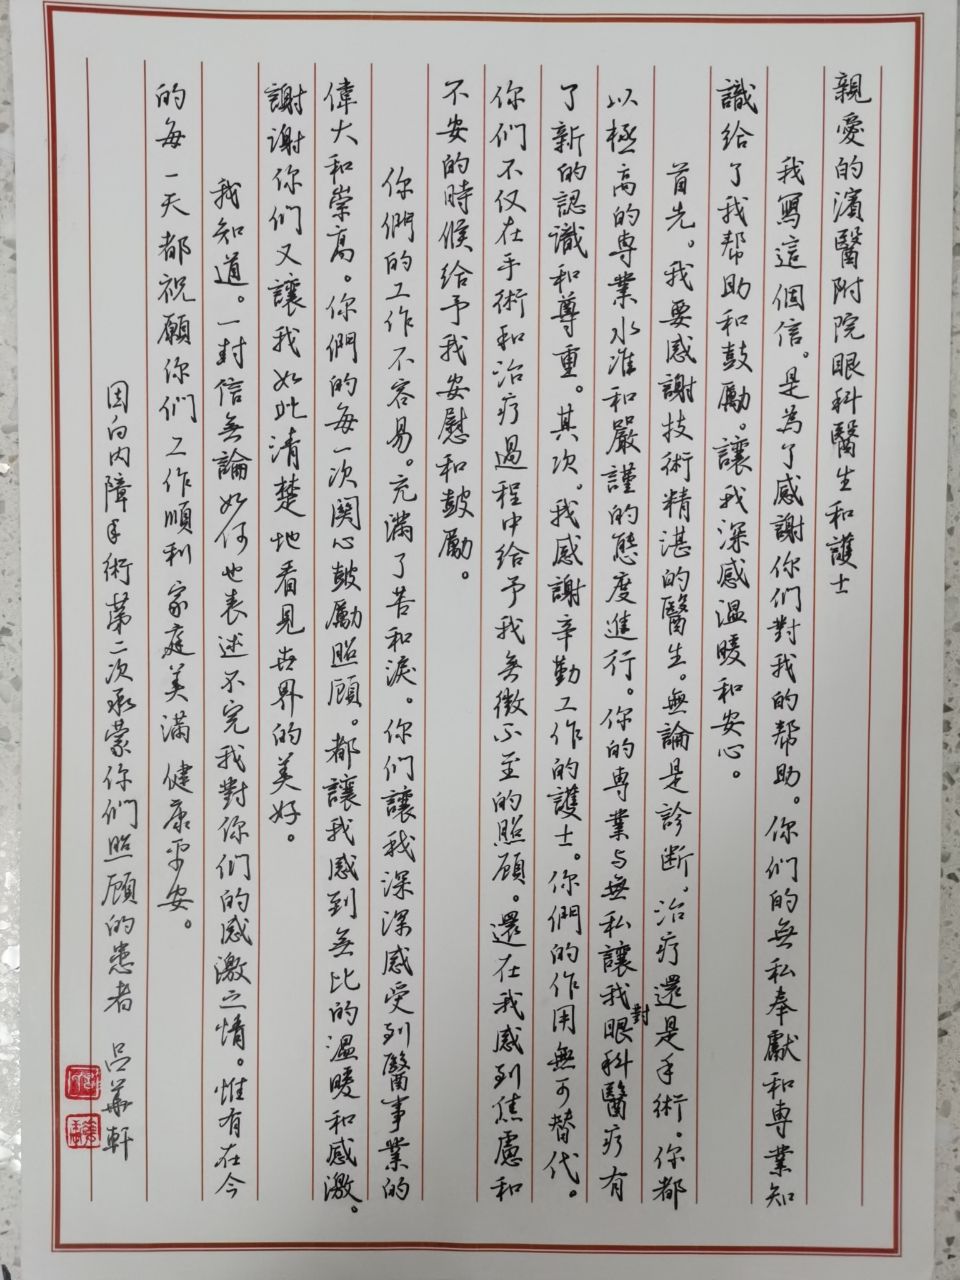 親愛的濱醫附院眼科醫生和護士
我寫這個信。是為了感謝你们對我的幫助。你们的無私奉獻和專業知
識给了我帮助和鼓勵。讓我深感温暖和安心。
首先。我要感謝技術精湛的醫生。無論是診断。治疗還是手術。你都
以極高的専業水准和嚴謹的態度進行。你的専業与無私讓我對眼科醫疗有
了新的認識和尊重。其次。我感謝辛勤工作的護士。你們的作用無可替代。
你们不仅在手術和治疗過程中给予我無微不至的照顧。還在我感到焦慮和
不安的時候给予我安慰和鼓勵。
你們的工作不容易。充滿了苦和淚。你们讓我深深感受到醫事業的
偉大和崇高。你們的每一次関心鼓勵照顾。都讓我感到無比的温暖和感激。
謝謝你们又讓我如此清楚地看見世界的美好。
我知道。一封信無論如何也表述不完我對你们的感激之情。惟有在今
的每一天都祝願你们工作順利家庭美滿健康平安。
因白内障手術第二次承蒙你们照顾的患者 吕華軒